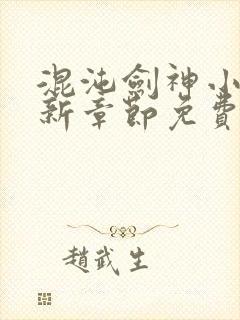 混沌劍神小
新章節免費
趙武生